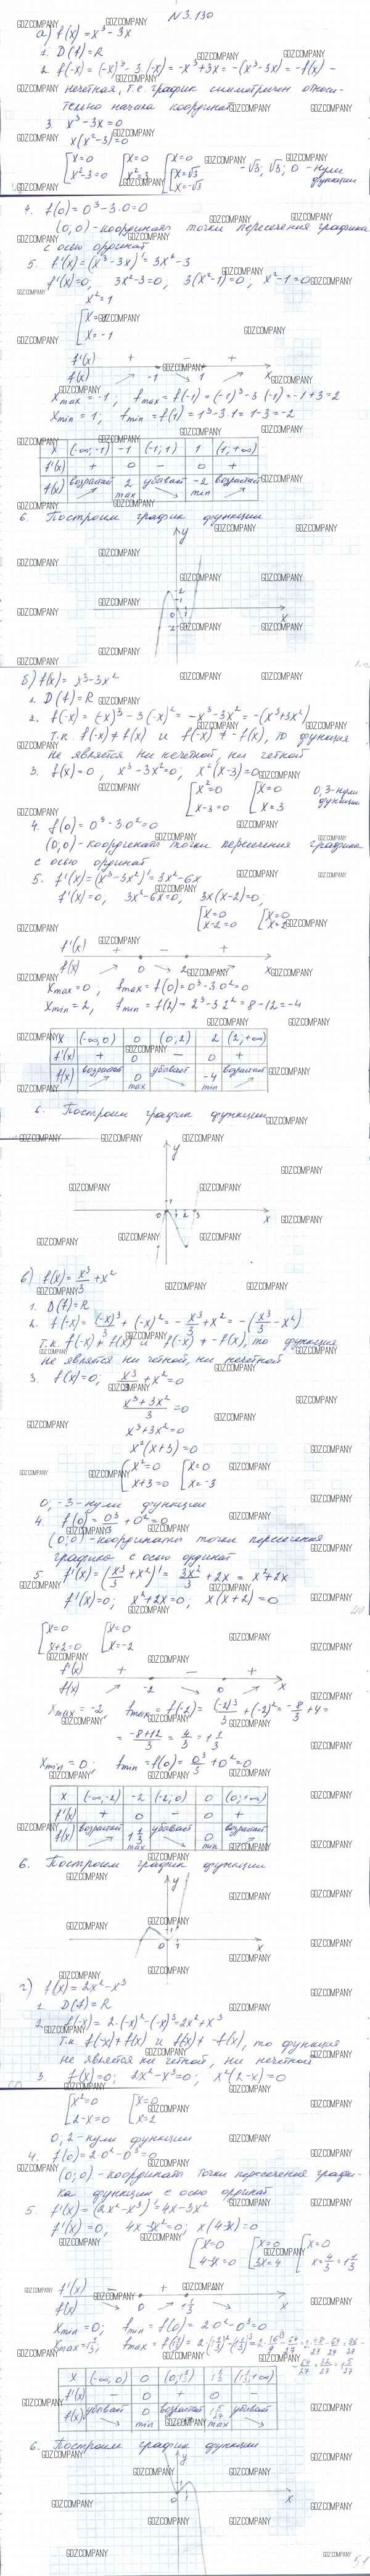 N 3.130
а) f(x) = x³ - 3x
1. D(f) = R
2. f(-x) = (-x)³ - 3·(-x) = -x³ + 3x = -(x³ - 3x) = -f(x) -
нечетная, т.е. график симметричен относи-
тельно начала координат
3. x³ - 3x = 0
x(x² - 3) = 0
[x = 0 [x = 0 [x = 0 -√3; √3; 0 - нули
x² - 3 = 0 x² = 3 x = √3 функции
x = -√3
4. f(0) = 0³ - 3·0 = 0
(0; 0) - координаты точки пересечения графика
с осью ординат
5. f'(x) = (x³ - 3x)' = 3x² - 3
f'(x) = 0, 3x² - 3 = 0, 3(x² - 1) = 0, x² - 1 = 0
x² = 1
x = -1
f'(x) + - +
f(x) -1 1 x
x max = -1, f max = f(-1) = (-1)³ - 3·(-1) = -1 + 3 = 2
x min = 1, f min = f(1) = 1³ - 3·1 = 1 - 3 = -2
x (-∞; -1) -1 (-1; 1) 1 (1; +∞)
f'(x) + 0 - 0 +
f(x) возрастает 2 убывает -2 возрастает
max min
6. Построим график функции
y
x
б) f(x) = x³ - 3x²
1. D(f) = R
2. f(-x) = (-x)³ - 3(-x)² = -x³ - 3x² = -(x³ + 3x²)
т.к. f(-x) ≠ f(x) и f(-x) ≠ -f(x), то функция
не является ни нечетной, ни четной
3. f(x) = 0, x³ - 3x² = 0; x²(x - 3) = 0
[x² = 0 [x = 0 0, 3 - нули
x - 3 = 0 x = 3 функции
4. f(0) = 0³ - 3·0² = 0
(0; 0) - координаты точки пересечения графика
с осью ординат
5. f'(x) = (x³ - 3x²)' = 3x² - 6x
f'(x) = 0, 3x² - 6x = 0, 3x(x - 2) = 0,
[x = 0 [x = 0
x - 2 = 0 x = 2
f'(x) + - +
f(x) 0 2 x
x max = 0, f max = f(0) = 0³ - 3·0² = 0
x min = 2, f min = f(2) = 2³ - 3·2² = 8 - 12 = -4
x (-∞; 0) 0 (0; 2) 2 (2; +∞)
f'(x) + 0 - 0 +
f(x) возрастает 0 убывает -4 возрастает
max min
6. Построим график функции
y
0 1 2 3 x
в) f(x) = x³/3 + x²
1. D(f) = R
2. f(-x) = (-x)³/3 + (-x)² = -x³/3 + x² = -(x³/3 - x²)
т.к. f(-x) ≠ f(x) и f(-x) ≠ -f(x), то функция
не является ни четной, ни нечетной
3. f(x) = 0; x³/3 + x² = 0
(x³ + 3x²)/3 = 0
x³ + 3x² = 0
x²(x + 3) = 0
[x² = 0 [x = 0
x + 3 = 0 x = -3
0, -3 - нули функции
4. f(0) = 0³/3 + 0² = 0
(0; 0) - координаты точки пересечения
графика с осью ординат
5. f'(x) = (x³/3 + x²)' = 3x²/3 + 2x = x² + 2x
f'(x) = 0; x² + 2x = 0; x(x + 2) = 0
[x = 0 [x = 0
x + 2 = 0 x = -2
f'(x) + - +
f(x) -2 0 x
x max = -2, f max = f(-2) = (-2)³/3 + (-2)² = -8/3 + 4 =
= (-8 + 12)/3 = 4/3 = 1 1/3
x min = 0; f min = f(0) = 0³/3 + 0² = 0
x (-∞; -2) -2 (-2; 0) 0 (0; +∞)
f'(x) + 0 - 0 +
f(x) возрастает 1 1/3 убывает 0 возрастает
max min
6. Построим график функции
y
0 1 x
г) f(x) = 2x² - x³
1. D(f) = R
2. f(-x) = 2·(-x)² - (-x)³ = 2x² + x³
т.к. f(-x) ≠ f(x) и f(-x) ≠ -f(x), то функция
не является ни четной, ни нечетной
3. f(x) = 0; 2x² - x³ = 0; x²(2 - x) = 0
[x² = 0 [x = 0
2 - x = 0 x = 2
0; 2 - нули функции
4. f(0) = 2·0² - 0³ = 0
(0; 0) - координаты точки пересечения графи-
ка функции с осью ординат
5. f'(x) = (2x² - x³)' = 4x - 3x²
f'(x) = 0; 4x - 3x² = 0; x(4 - 3x) = 0
[x = 0 [x = 0 [x = 0
4 - 3x = 0 3x = 4 x = 4/3 = 1 1/3
f'(x) - + -
f(x) 0 1 1/3 x
x min = 0; f min = f(0) = 2·0² - 0³ = 0
x (-∞; 0) 0 (0; 1 1/3) 1 1/3 (1 1/3; +∞)
f'(x) - 0 + 0 -
f(x) убывает 0 возрастает убывает
min max
6. Построим график функции
y
x
GDZ.COMPANY